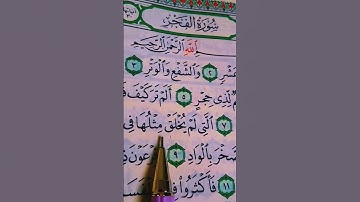 سُورَةُ الفَجْرِ
بِسْمِ اللَّهِ الرَّحْمَٰنِ الرَّحِيمِ
٢ وَالشَّفْعِ وَالْوَتْرِ ٣
لِذِي حِجْرٍ ٥ أَلَمْ تَرَ كَيْفَ
٧ الَّتِي لَمْ يُخْلَقْ مِثْلُهَا فِي
بِالْوَادِ ٩
١١ فَأَكْثَرُوا